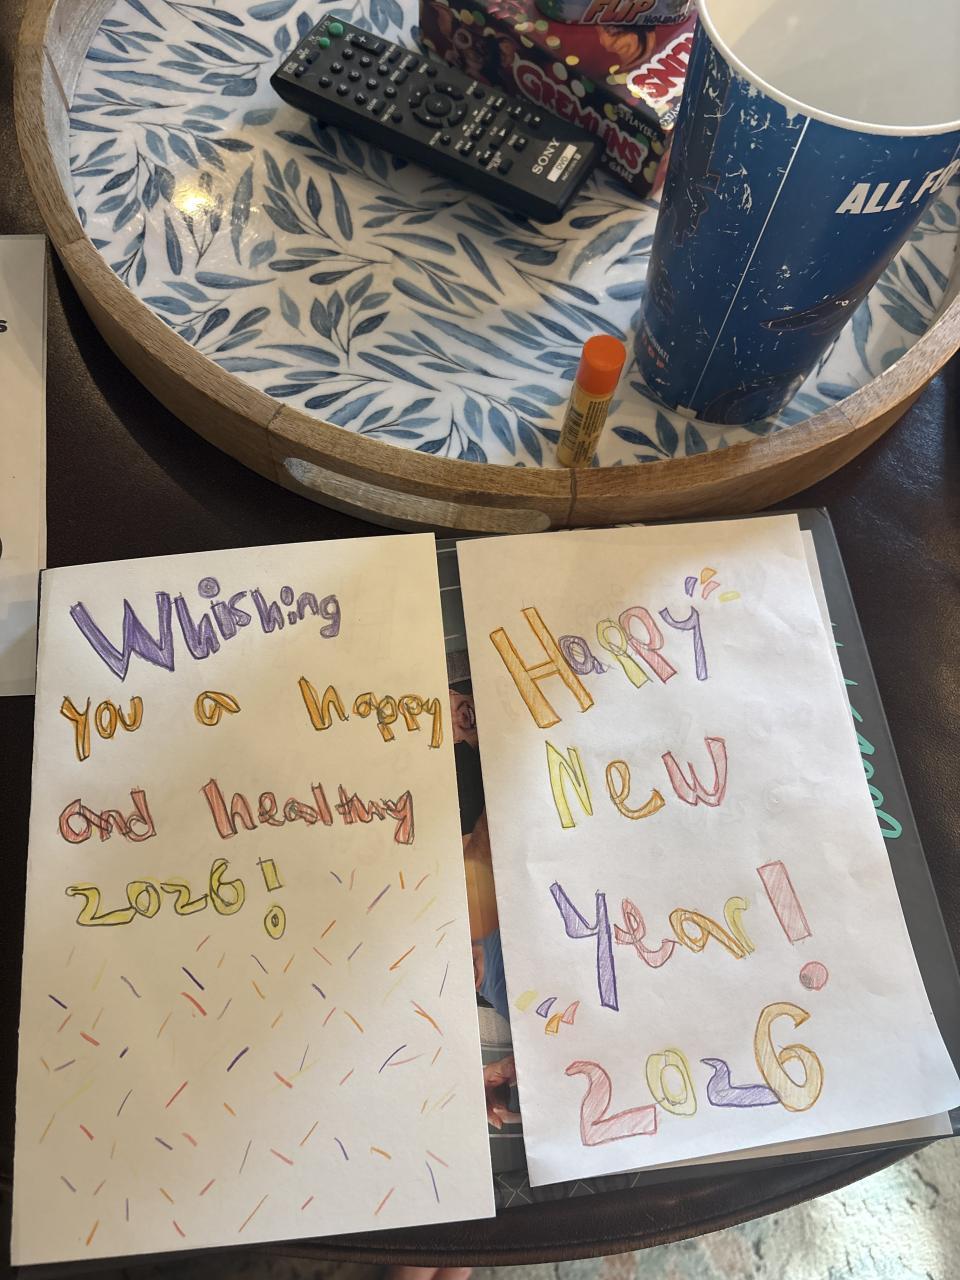 FLIP
HOLIDAY
GREMLINS
GAME
SONY
ALL FO
s
Whishing
you a happy
and healthy
2026!
Happy
New
Year!
2026